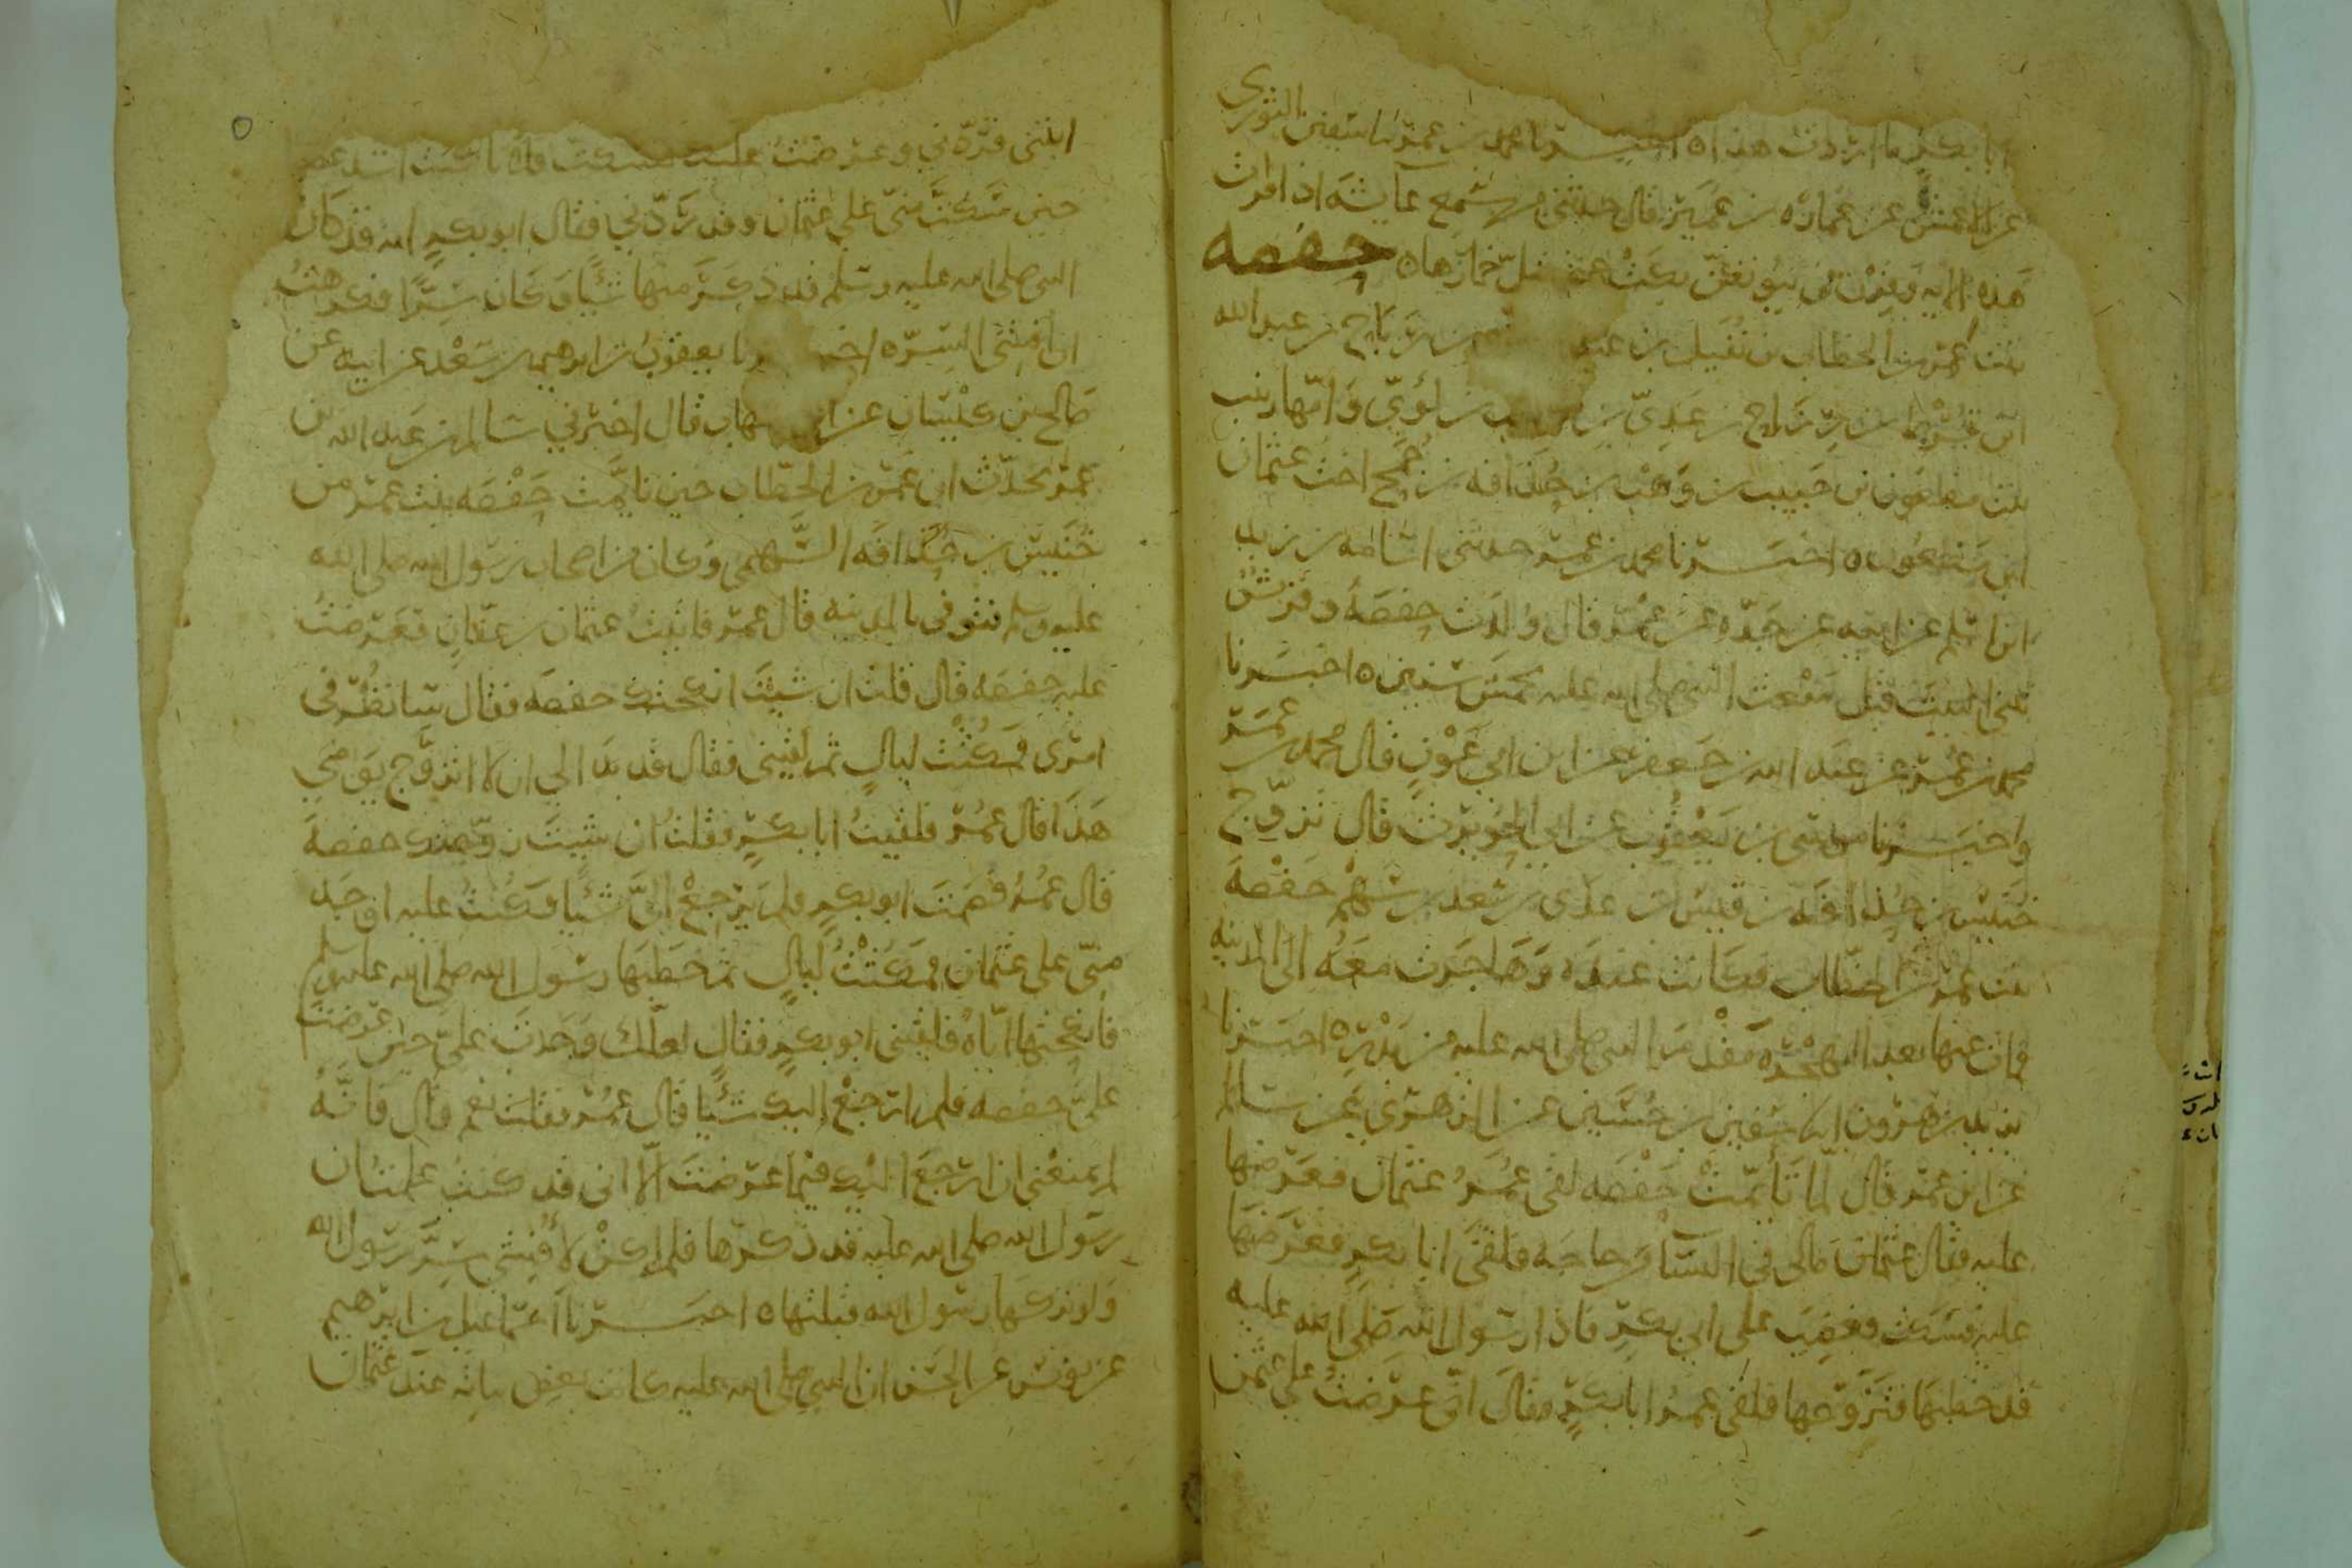 ابا بكر ما اردت هذا ه اخبرنا محمد بن عمر نا سفين الثوري
عن الاعمش عن عمارة بن عمير قال حدثني من سمع عايشه اذا قرات
هذه الايه وقرن في بيوتكن بكت حتى تبل خمارها ه حفصه
بنت عمر بن الخطاب بن نفيل بن عبد بن رباح بن عبد الله
ابن قرط بن رزاح بن عدي بن كعب بن لؤي وامها زينب
بنت مظعون بن حبيب بن وهب بن حذافه بن جمح اخت عثمان
ابن مظعون ه اخبرنا محمد بن عمر حدثني اسامه بن زيد
ابن اسلم عن ابيه عن جده عن عمر قال ولدت حفصه وقريش
تبني البيت قبل مبعث النبي صلى الله عليه بخمس سنين ه اخبرنا
محمد بن عمر عن عبد الله بن جعفر عن ابن ابي عون قال محمد بن عمر
واخبرنا موسى بن يعقوب عن ابي الحويرث قال تزوج
خنيس بن حذافه بن قيس بن عدي بن سعد بن سهم حفصة
بنت عمر بن الخطاب فكانت عنده وهاجرت معه الى المدينه
فمات عنها بعد الهجره مقدم النبي صلى الله عليه من بدر ه اخبرنا
يزيد بن هرون انا سفين بن حسين عن الزهري عن سالم
عن ابن عمر قال لما تأيمت حفصه لقى عمر عثمان فعرضها
عليه فقال عثمان مالي في النسا حاجه فلقي ابا بكر فعرضها
عليه فسكت فغضب على ابي بكر فاذا رسول الله صلى الله عليه
قد خطبها فتزوجها فلقي عمر ابا بكر فقال اني عرضت على عثمن
ابنتي فردني وعرضت عليك فسكت فلأنا كنت اشد غضبا
حين سكت مني على عثمان وقد ردني فقال ابو بكر انه قد كان
النبي صلى الله عليه وسلم قد ذكر منها شيًا وكان سرًا فكرهت
ان افشي السر ه اخبرنا يعقوب بن ابرهيم بن سعد عن ابيه عن
صالح بن كيسان عن ابن شهاب قال اخبرني سالم بن عبد الله بن
عمر يحدث ان عمر بن الخطاب حين تايمت حفصه بنت عمر من
خنيس بن حذافه السهمي وكان من اصحاب رسول الله صلى الله
عليه وسلم فتوفي بالمدينه قال عمر فاتيت عثمان بن عفان فعرضت
عليه حفصه قال قلت ان شيت انكحتك حفصه فقال سانظر في
امري فمكثت ليال ثم لقيني فقال قد بدا لي ان لا اتزوج يومي
هذا قال عمر فلقيت ابا بكر فقلت ان شيت زوجتك حفصة
قال عمر فصمت ابو بكر فلم يرجع الي شيًا فكنت عليه اوجد
مني على عثمان فمكثت ليال ثم خطبها رسول الله صلى الله عليه وسلم
فانكحتها اياه فلقيني ابو بكر فقال لعلك وجدت علي حين عرضت
علي حفصه فلم ارجع اليك شيًا قال عمر فقلت نعم قال فانه
لم يمنعني ان ارجع اليك فيما عرضت الا اني قد كنت علمت ان
رسول الله صلى الله عليه قد ذكرها فلم اكن لأفشي سر رسول الله
ولو تركها رسول الله قبلتها ه اخبرنا اسماعيل بن ابرهيم
عن يونس عن الحسن ان النبي صلى الله عليه كانت بعض بناته عند عثمان